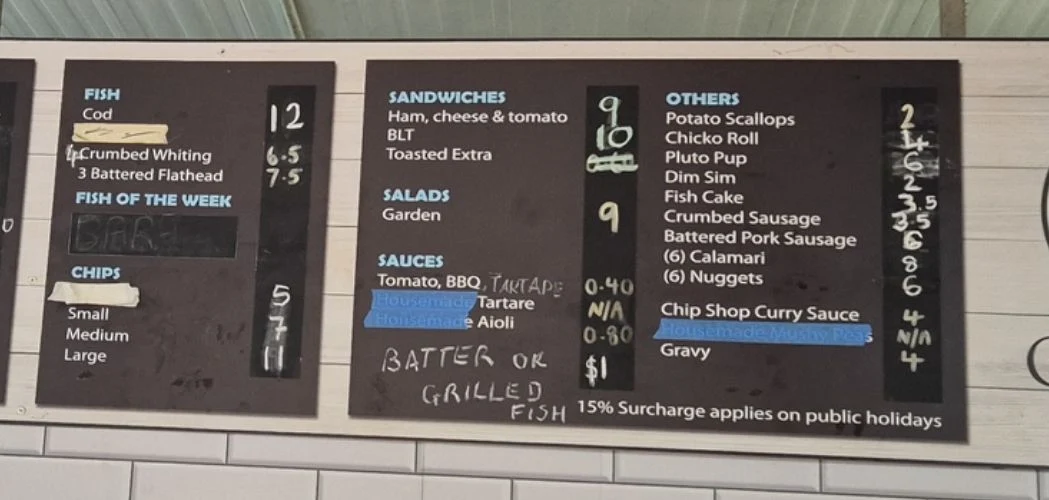 FISH
Cod 12
4 Crumbed Whiting 6.5
3 Battered Flathead 7.5
FISH OF THE WEEK
CHIPS
Small 5
Medium 7
Large 11
SANDWICHES
Ham, cheese & tomato 9
BLT 10
Toasted Extra
SALADS
Garden 9
SAUCES
Tomato, BBQ, TARTARE 0.40
Housemade Tartare N/A
Housemade Aioli 0.80
BATTER OR $1
GRILLED
FISH
OTHERS
Potato Scallops 2
Chicko Roll 4
Pluto Pup 6
Dim Sim 2
Fish Cake 3.5
Crumbed Sausage 3.5
Battered Pork Sausage 6
(6) Calamari 8
(6) Nuggets 6
Chip Shop Curry Sauce 4
Housemade Mushy Peas N/A
Gravy 4
15% Surcharge applies on public holidays
0